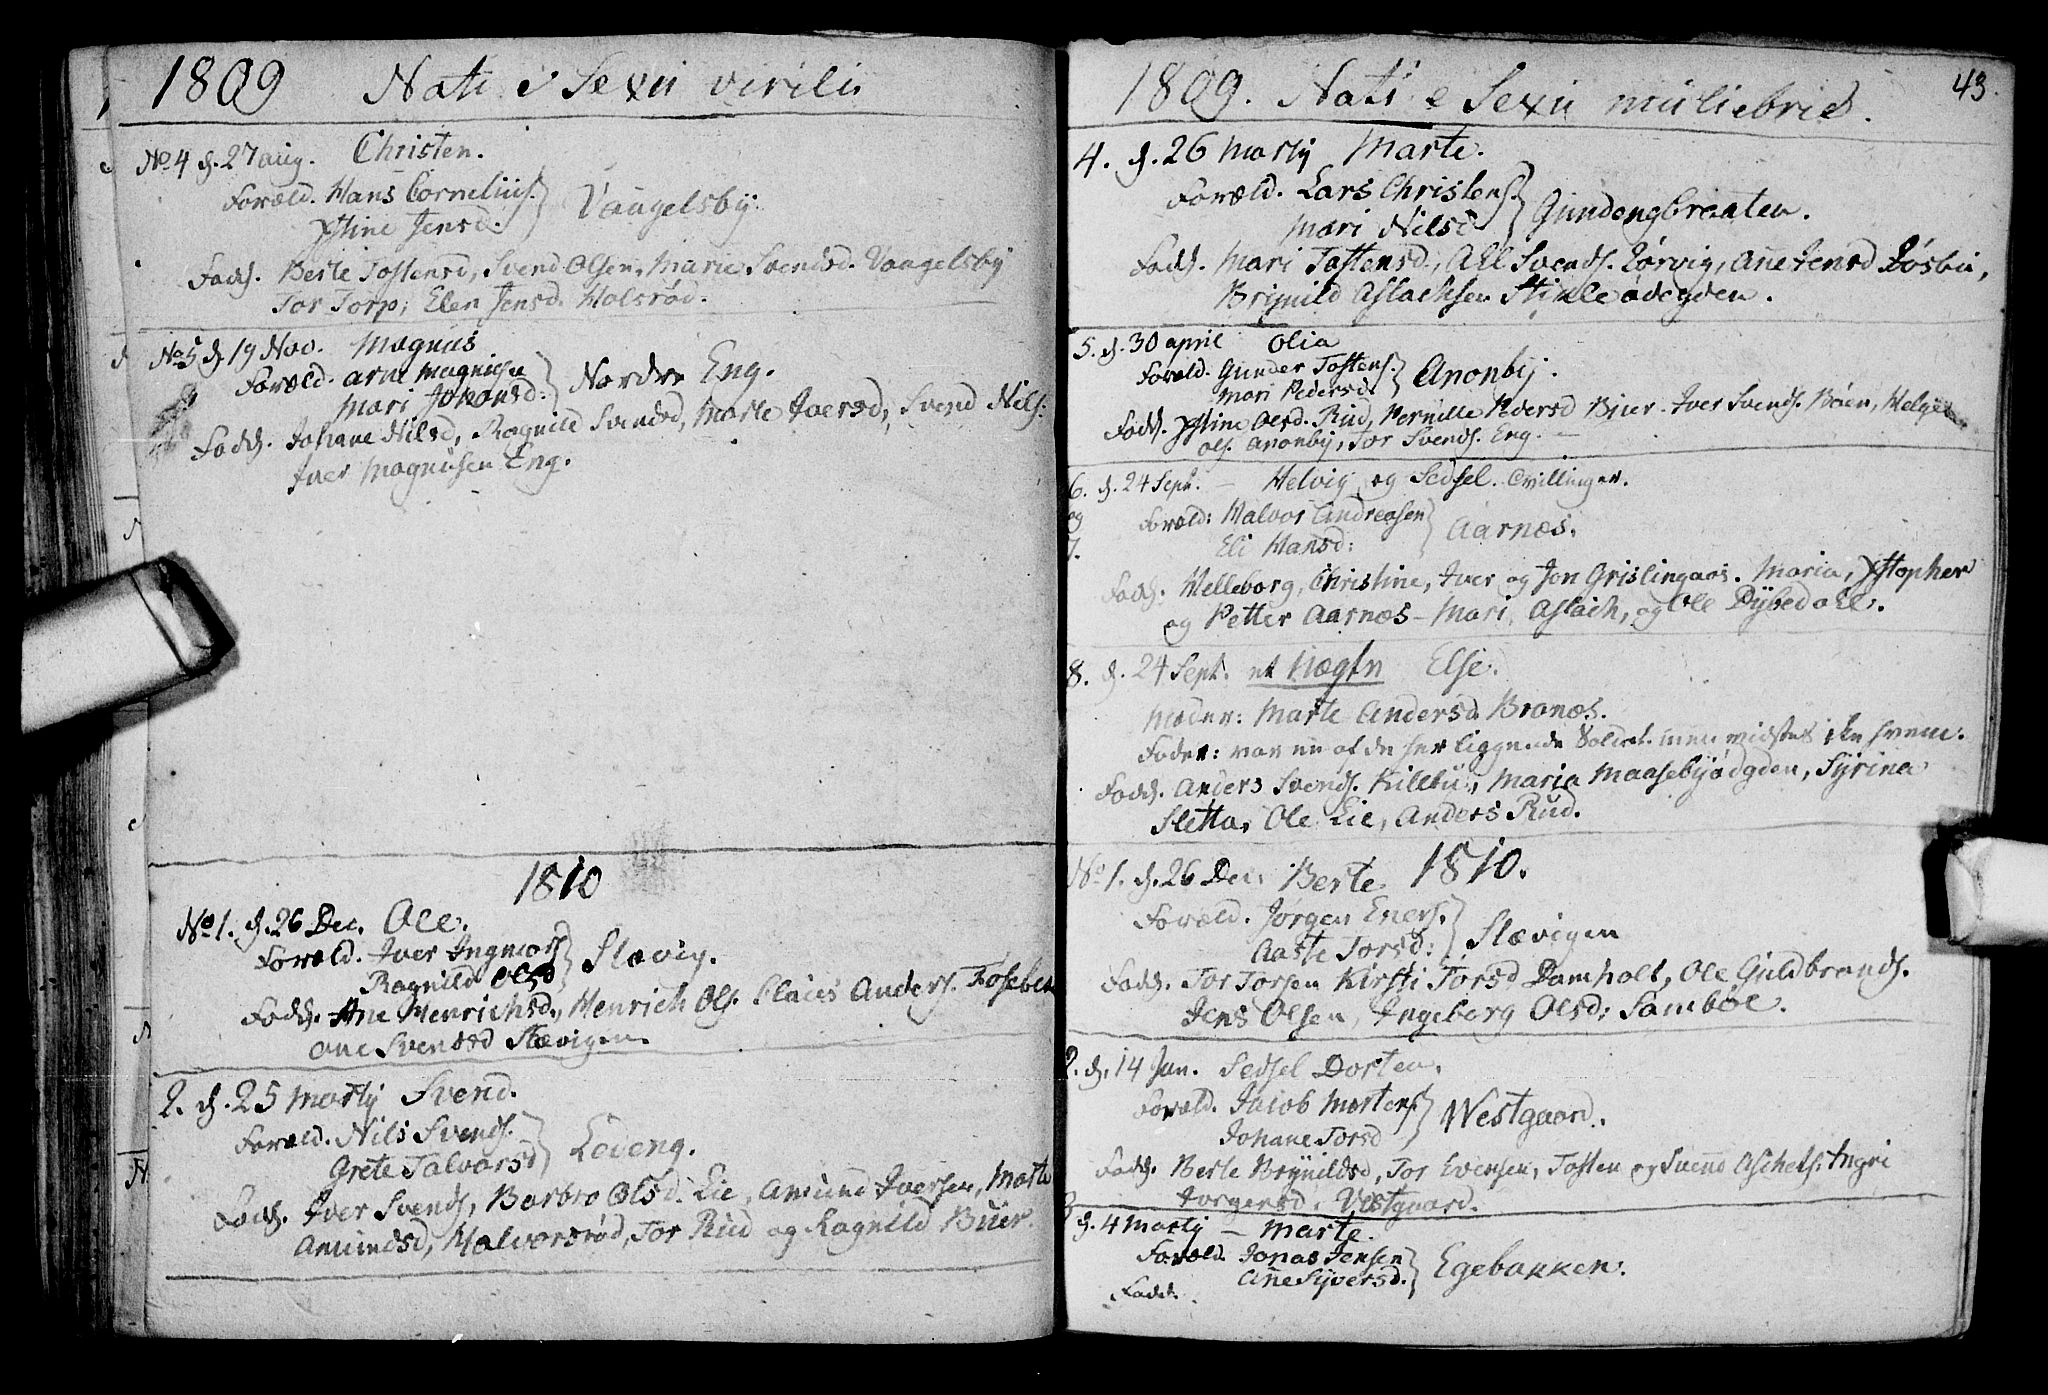 1809 Nati e Sexu virili
No 4 d. 27 aug. Christen.
Foræld. Hans Cornelius.
Xstine Jensd. } Vaugelsby
Fadd. Berte Tostensd, Svend Olsen, Marie Svendsd. Vaugelsby
Tor Torp, Elen Jensd. Holsrød.
No 5 d. 19 Nov. Magnus
Foræld. Arne Magnusen
Mari Johansd: } Nordre Eng.
Fadd. Johane Nilsd, Ragnild Svendsd, Marte Iversd, Svend Nils:
Iver Magnusen Eng.
1810
No 1. d. 26 Dec. Ole.
Foræld. Iver Ingvors
Ragnild Olsd } Slævig.
Fadd. Ane Henrichsd., Henrich Ols. Claus Anders.
Ane Svendsd Slævigen.
2. d. 25 Martij Svend.
Foræld. Nils Svends.
Grete Talvorsd } Lodeng.
Fadd. Iver Svends, Barbro Olsd. Lie, Amund Iversen, Marte
Amundsd, Halvorsrød, Tor Rud og Ragnild Buer.
1809. Nati e Sexu muliebrie. 43.
4. d. 26 Martij Marte.
Foræld. Lars Christens.
Mari Nilsd } Gundengbraaten.
Fadd. Mari Tostensd., Ael Svends. Rørvig, Ane Jensd Røsbu,
Brynild Aslachsen Stikleødegden.
5. d. 30 april Olia
Foræld. Gunder Tostens.
Mari Pedersd. } Anonby.
Fadd. Xstine Olsd. Rud, Pernille Pedersd Buer. Iver Svends. Bøen, Helge
Ols. Anonby, Tor Svends. Eng.
6. d. 24 Sept. - Helvig og Sedsel. Tvillinger.
og Foræld: Halvor Andreasen
7. Eli Hansd: } Aarnæs.
Fadd: Helleborg, Christine, Iver og Jon Grislingaas. Maria, Xstopher
og Petter Aarnæs - Mari, Aslach, og Ole Dybedahl.
8. d. 24 Sept. et Uægtn Else.
Moder: Marte Andersd Branæs.
Fader: var en af de her liggende Soldat. men vidstes ikke hvem.
Fadd. Anders Svends. Killebu, Maria Maasebyødgden, Syrina
Sletta, Ole Lie, Anders Rud.
1810.
No 1. d. 26 Dec. Berte
Foræld. Jørgen Eners.
Aaste Torsd: } Slævigen
Fadd. Tor Torsen Kirsti Torsd Damholt, Ole Guldbrands.
Jens Olsen, Ingeborg Olsd: Sambøe.
2. d. 14 Jan. Sedsel Dorten.
Foræld. Jacob Mortens
Johane Torsd } Westgaard.
Fadd. Berte Brynildsd, Tor Evensen, Tosten og Svend Aschels: Ingri
Torgersd. Vestgaard.
3 d. 4 Martij - Marte.
Foræld. Jonas Jensen
Ane Syversd. } Egebakken.
Fadd.